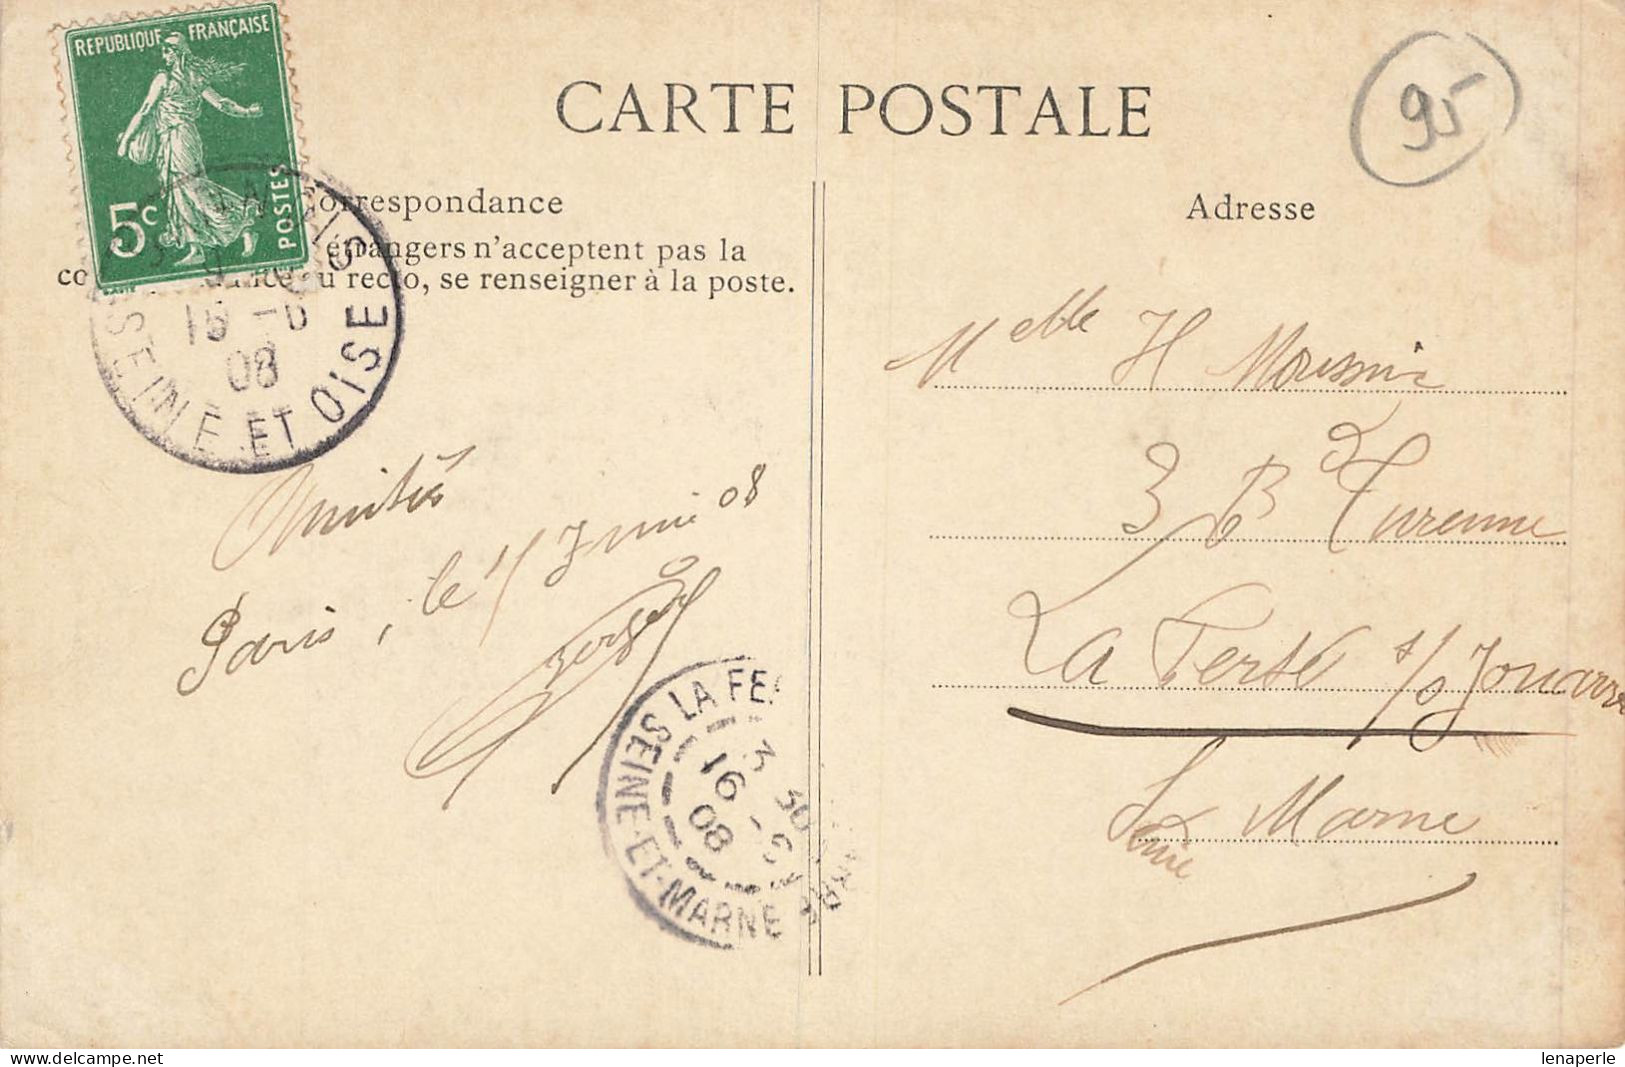 REPUBLIQUE FRANÇAISE
5c
POSTES
CARTE POSTALE
95
orrespondance
étrangers n'acceptent pas la
co ance au recto, se renseigner à la poste.
Adresse
15 -6
08
SEINE ET OISE
Amitiés
Paris, le 15 Juin 08
Melle H
3 Bd Turenne
La Ferté s/s Jouarre
Seine Marne
LA FE
3 30
16 -6
08
SEINE-ET-MARNE
lenaperle